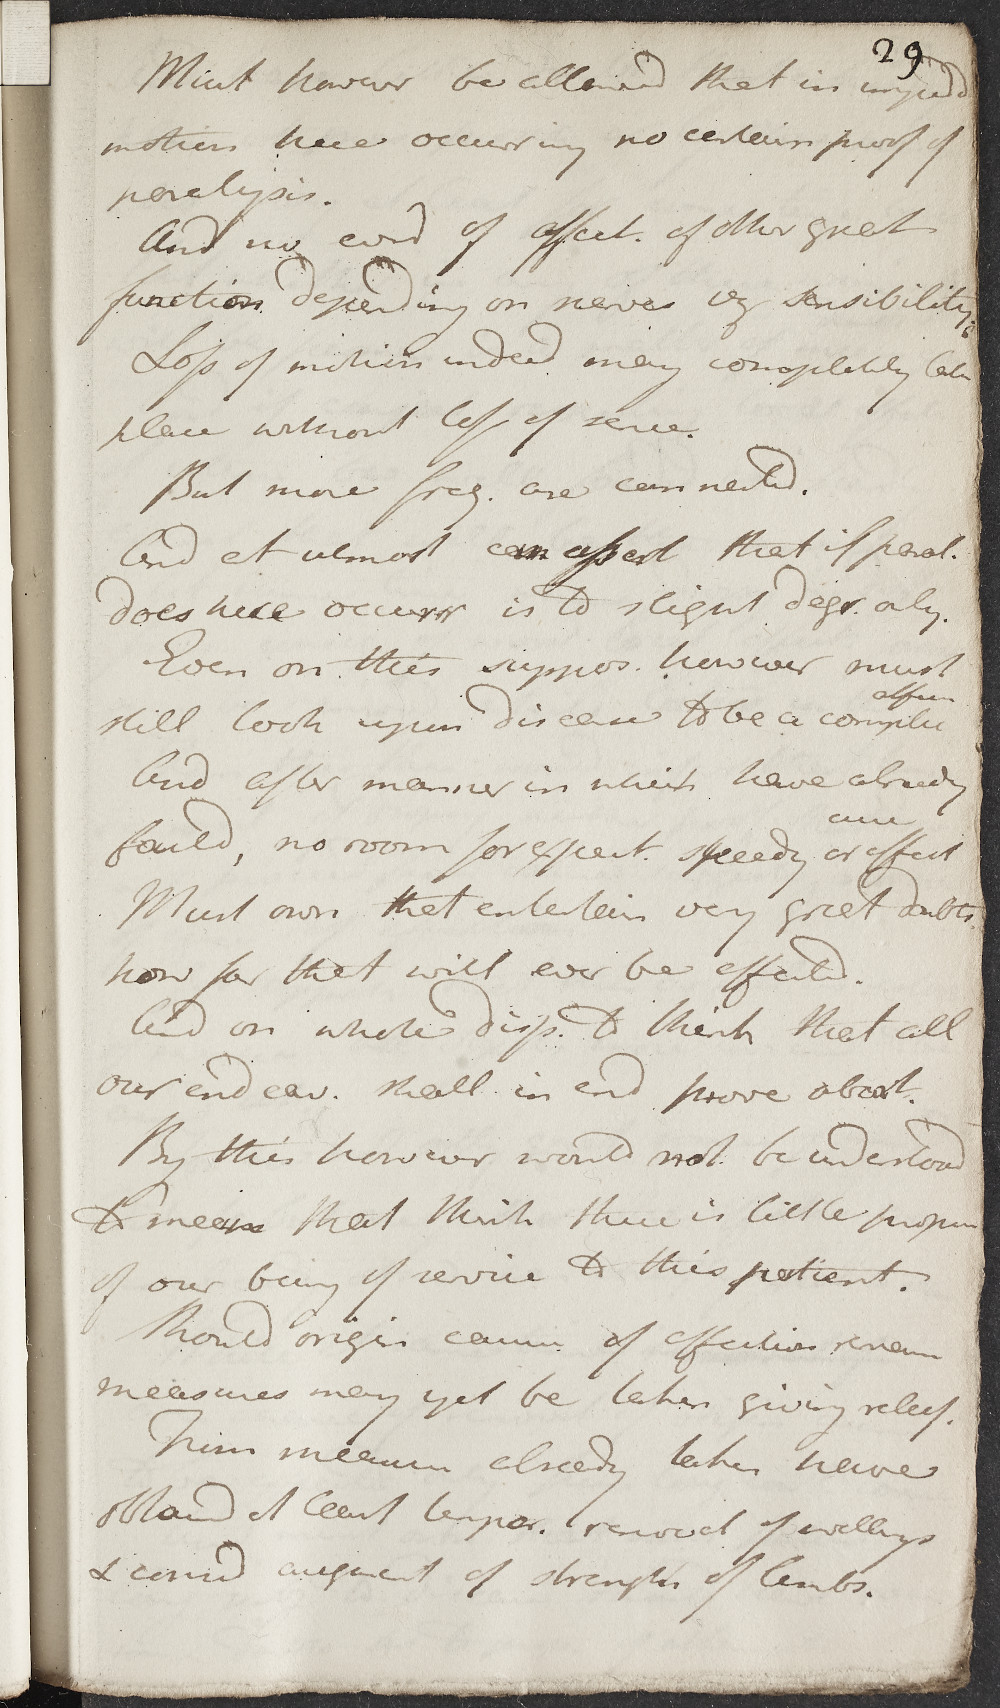 29
Must however be allowed that in impeded
motion here occurring no certain proof of
paralysis.
And no evid of affect. of other great
function depending on nerves vz sensibility.
Loss of motion indeed may completely take
place without loss of sense.
But more freq. are connected.
And at utmost can assert that if paral.
does here occurr is to slight degr. only.
Even on this suppos. however must
still look upon disease to be a complic
affecn
And after manner in which have already
cure
found, no room for expect. speedy or effect
Must own that entertain very great doubts
how far that will ever be effected.
And on whole disp. to think that all
our endeav. shall in end prove abort.
By this however would not be understood
to mean that think there is little prospec
of our being of service to this patient.
Should origin cause of affection remain
measures may yet be taken giving releif.
From measures already taken have
obtaind at least tempor. removal of swellings
& consid augment of strength of limbs.